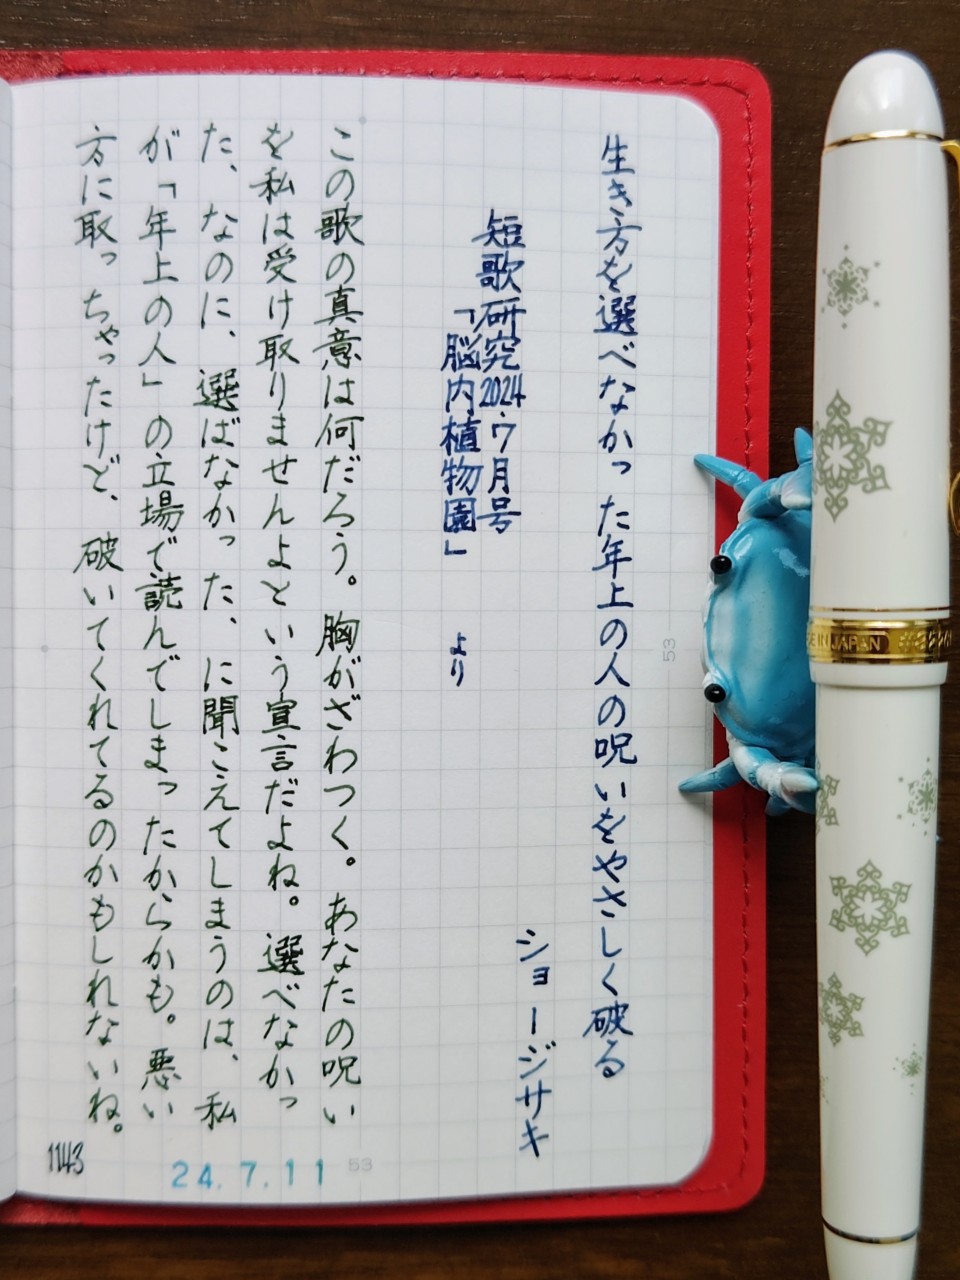 生き方を選べなかった年上の人の呪いをやさしく破る
ショージサキ
短歌研究2024・7月号
「脳内植物園」 より
この歌の真意は何だろう。胸がざわつく。あなたの呪い
を私は受け取りませんよという宣言だよね。選べなかっ
た、なのに、選ばなかった、に聞こえてしまうのは、私
が「年上の人」の立場で読んでしまったからかも。悪い
方に取っちゃったけど、破いてくれてるのかもしれないね。
1143
24.7.11
53
53
E IN JAPAN